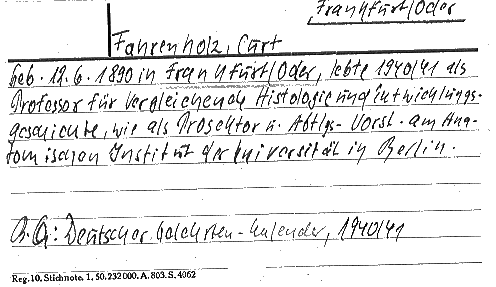 Frankfurt/Oder
Fahrenholz, Curt
geb. 12.6.1890 in Frankfurt/Oder, lebte 1940/41 als
Professor für vergleichende Histologie und Entwicklungs-
geschichte, wie als Prosektor u. Abtlgs-Vorst. am Ana-
tomischen Institut der Universität in Berlin.
B.Q.: Deutscher Gelehrten-Kalender, 1940/41
Reg.10. Stichnote. 1. 50. 232000. A. 803. S. 4062